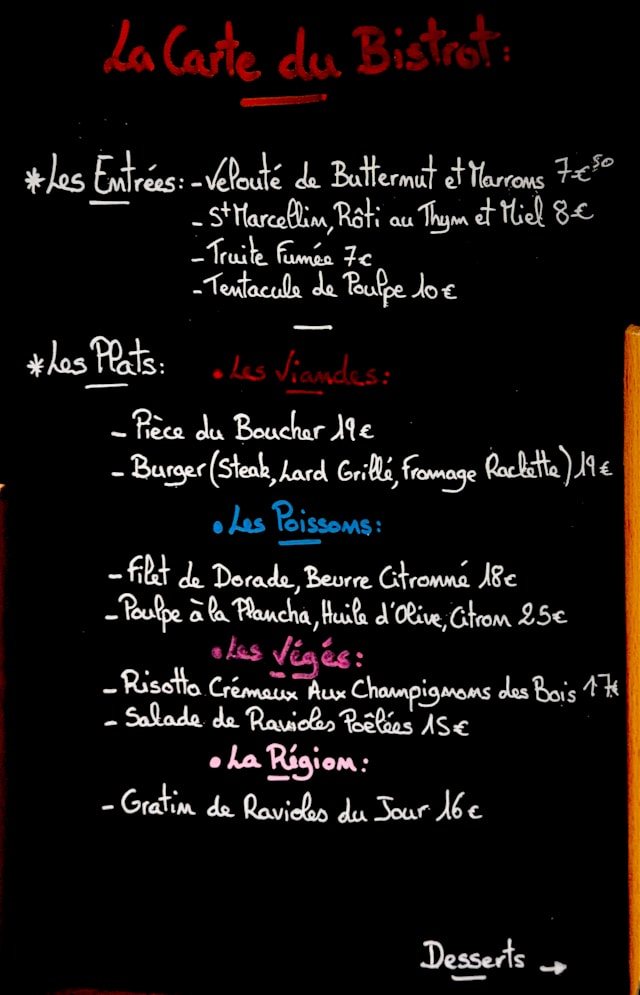 La Carte du Bistrot:
*Les Entrées: - Velouté de Butternut et Marrons 7€50
- St Marcellin, Rôti au Thym et Miel 8€
- Truite Fumée 7€
- Tentacule de Poulpe 10€
*Les Plats: • Les Viandes:
- Pièce du Boucher 19€
- Burger (Steak, Lard Grillé, Fromage Raclette) 19€
• Les Poissons:
- Filet de Dorade, Beurre Citronné 18€
- Poulpe à la Plancha, Huile d'Olive, Citron 25€
• Les Végés:
- Risotto Crémeux Aux Champignons des Bois 17€
- Salade de Ravioles Poêlées 15€
• La Région:
- Gratin de Ravioles du Jour 16€
Desserts →